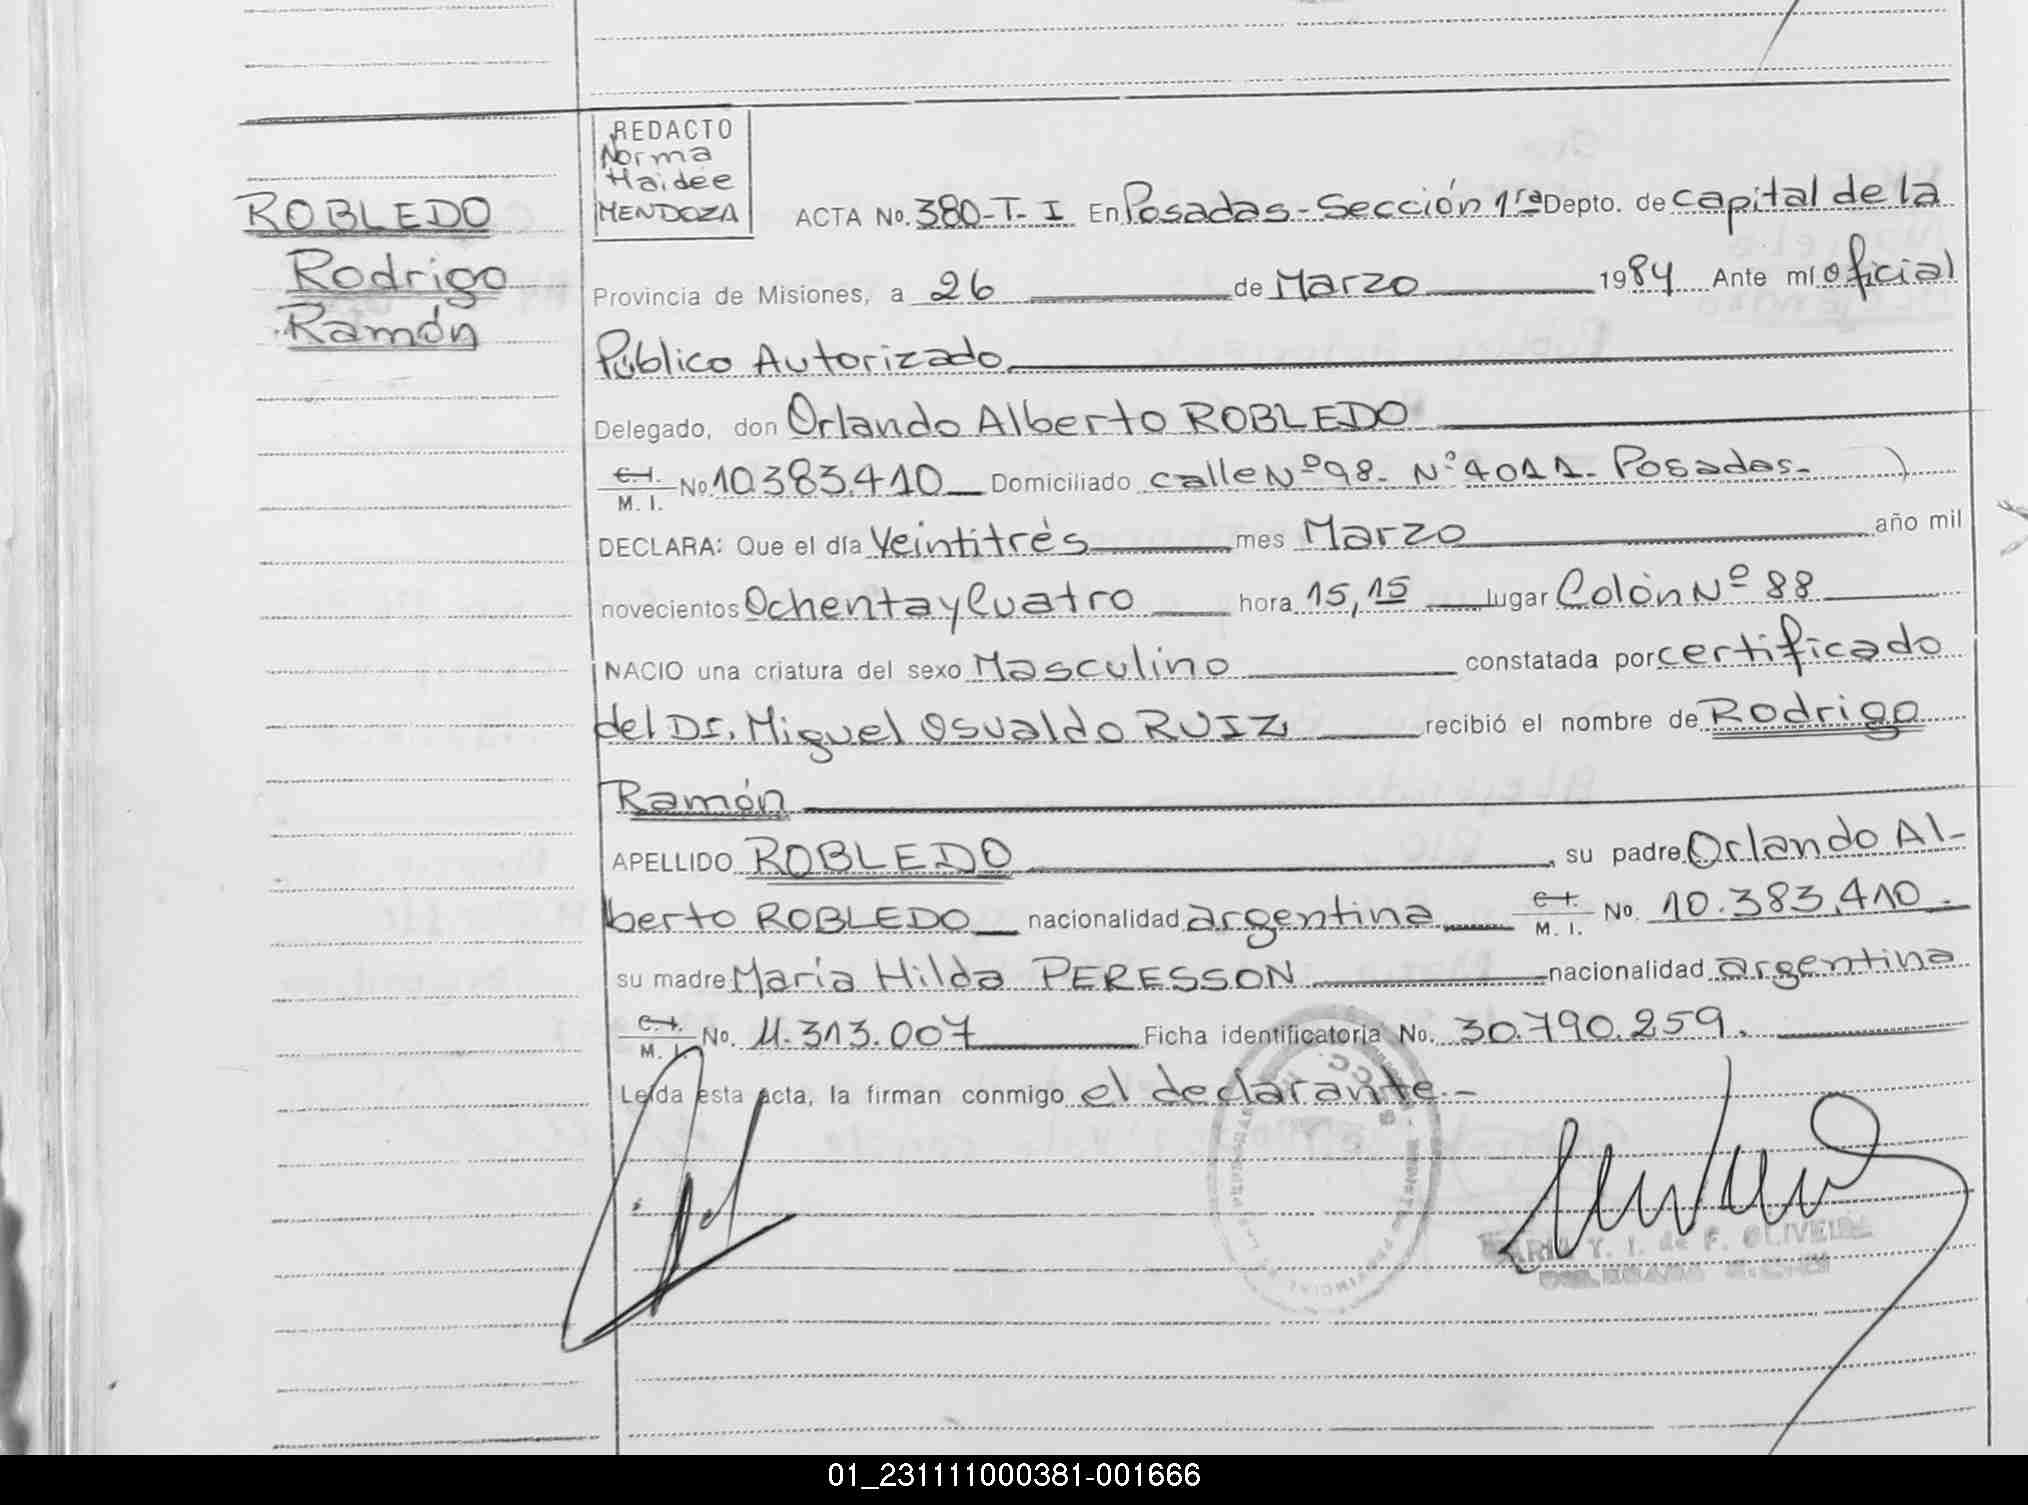 REDACTO
Norma
Haidée
MENDOZA
ROBLEDO
Rodrigo
Ramón
ACTA No. 380-T-I En Posadas-Sección 1ra Depto. de capital de la
Provincia de Misiones, a 26 de Marzo 1984 Ante mí oficial
Público Autorizado
Delegado, don Orlando Alberto ROBLEDO
C.I. M. I. No. 10.383.410 Domiciliado calle Nº 98- Nº 4011- Posadas-
DECLARA: Que el día Veintitrés mes Marzo año mil
novecientos Ochenta y Cuatro hora 15,15 lugar Colón Nº 88
NACIO una criatura del sexo Masculino constatada por certificado
del Dr. Miguel Osvaldo RUIZ recibió el nombre de Rodrigo
Ramón
APELLIDO ROBLEDO, su padre Orlando Al-
berto ROBLEDO nacionalidad argentina C.I. M. I. No. 10.383.410.
su madre María Hilda PERESSON nacionalidad argentina
C.I. M. I. No. 11.313.007 Ficha identificatoria No. 30.790.259.
Leída esta acta, la firman conmigo el declarante.-
Y. I. de F. OLIVEIRA
01_231111000381-001666